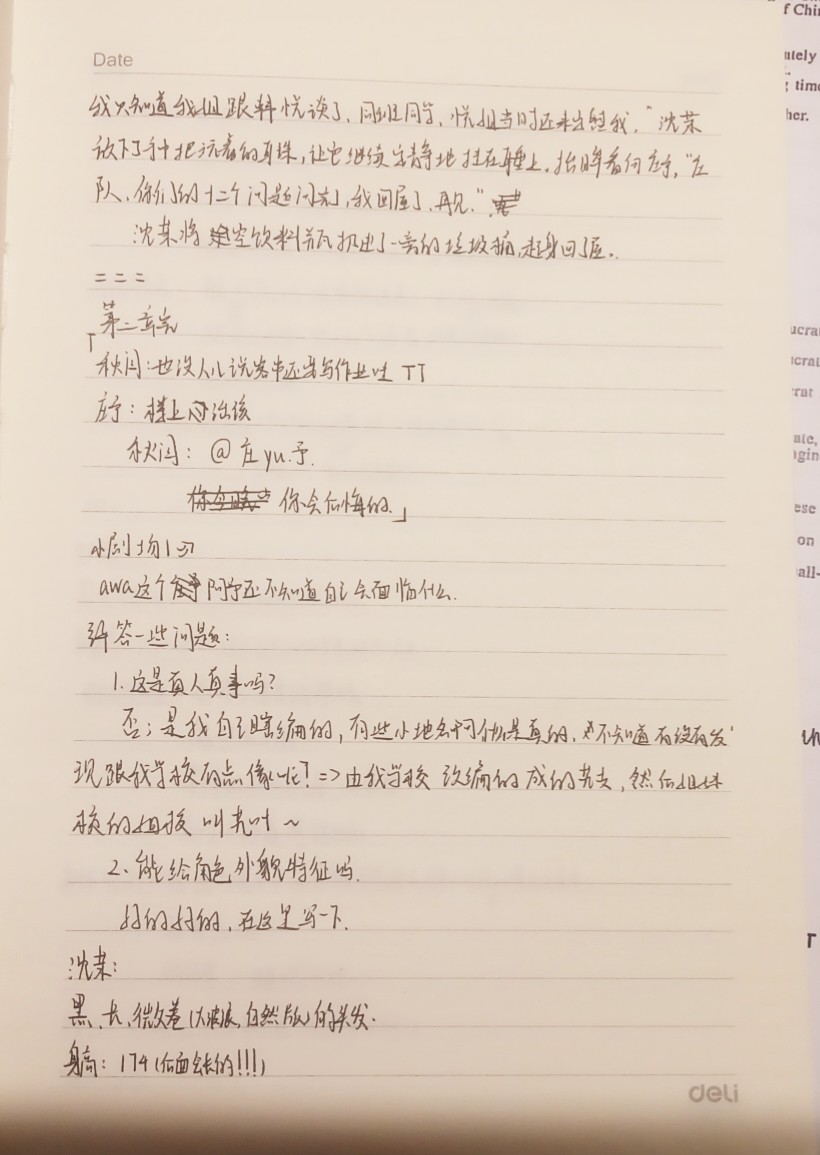 Date
我只知道我姐跟料悦谈了、同班同学、悦姐当时还未出生我。”沈茉
放下了手中把玩着的耳珠，让它继续安静地挂在耳垂上。抬眸看向庄予，“庄
队，你们的十二个问题问完了，我回屋了，再见。”
沈茉将空饮料瓶扔进了一旁的垃圾桶，起身回了屋。
= = =
第二章完
「秋闫：也没人儿说客串还要写作业吐 TT
庄予：楼上的活该
秋闫：@庄yu.予.
你会后悔的.」
小剧场1
awa 这个阿予还不知道自己会面临什么.
解答一些问题：
1. 这是真人真事吗？
否；是我自己瞎编的，有些小地名啊什么是真的，不知道有没有发
现跟我学校有点像呢？=> 由我学校 改编的成的芜支，然后姐妹
校的姐校 叫芜叶～
2、能给角色外貌特征吗.
好的好的，在这里写一下.
沈茉：
黑、长、微卷（大波浪，自然版）的头发.
身高：174（后面会长的!!!）
deli
f Chi
ately
time
her.
ucra
crat
rat
ate,
ese
on
all-